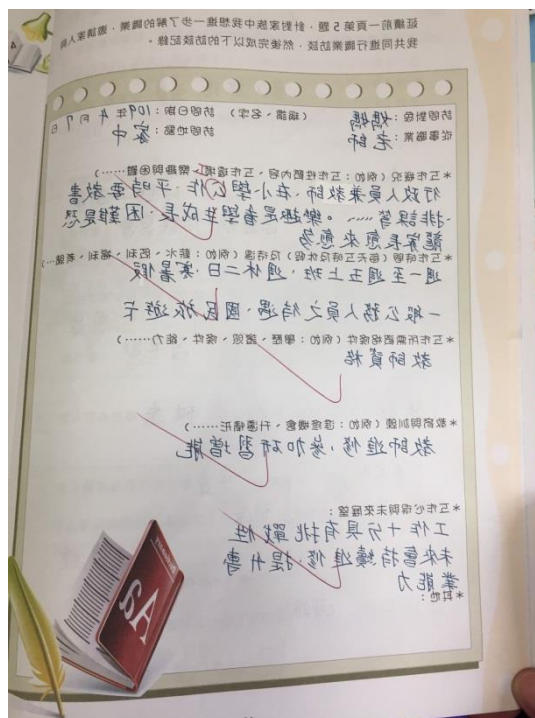 延續前一頁第5題，針對家族中我想進一步了解的職業，邀請家人與
我共同進行職業訪談，然後完成以下的訪談記錄。
訪問對象：媽媽（稱謂、名字） 訪問日期：109年4月9日
從事職業：老師 訪問地點：家中
*工作概況（例如：工作性質內容、工作環境、樂趣與困難……）
行政人員兼教師，在小學工作，平時要教書
、排課等……。樂趣是看學生成長，困難是恐
龍家長愈來愈多
*工作時間（每天工時及休假）及待遇（例如：薪水、紅利、福利、津貼…）
週一至週五上班，週休二日，寒暑假
一般公務人員之待遇，國民旅遊卡
*工作所需資格條件（例如：學歷、證照、條件、能力……）
教師資格
*教育與訓練（例如：進修機會、升遷情形……）
教師進修，參加研習增能
*工作心得與未來展望：
工作十分具有挑戰性
未來會持續進修，提升專
業能力
*其他：
Aa